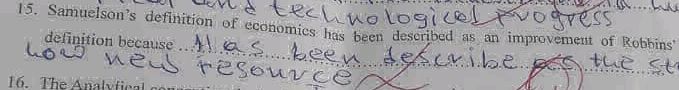 and technological progress
15. Samuelson's definition of economics has been described as an improvement of Robbins'
definition because ... It as been describe as the st
how new resource
16. The Analytical